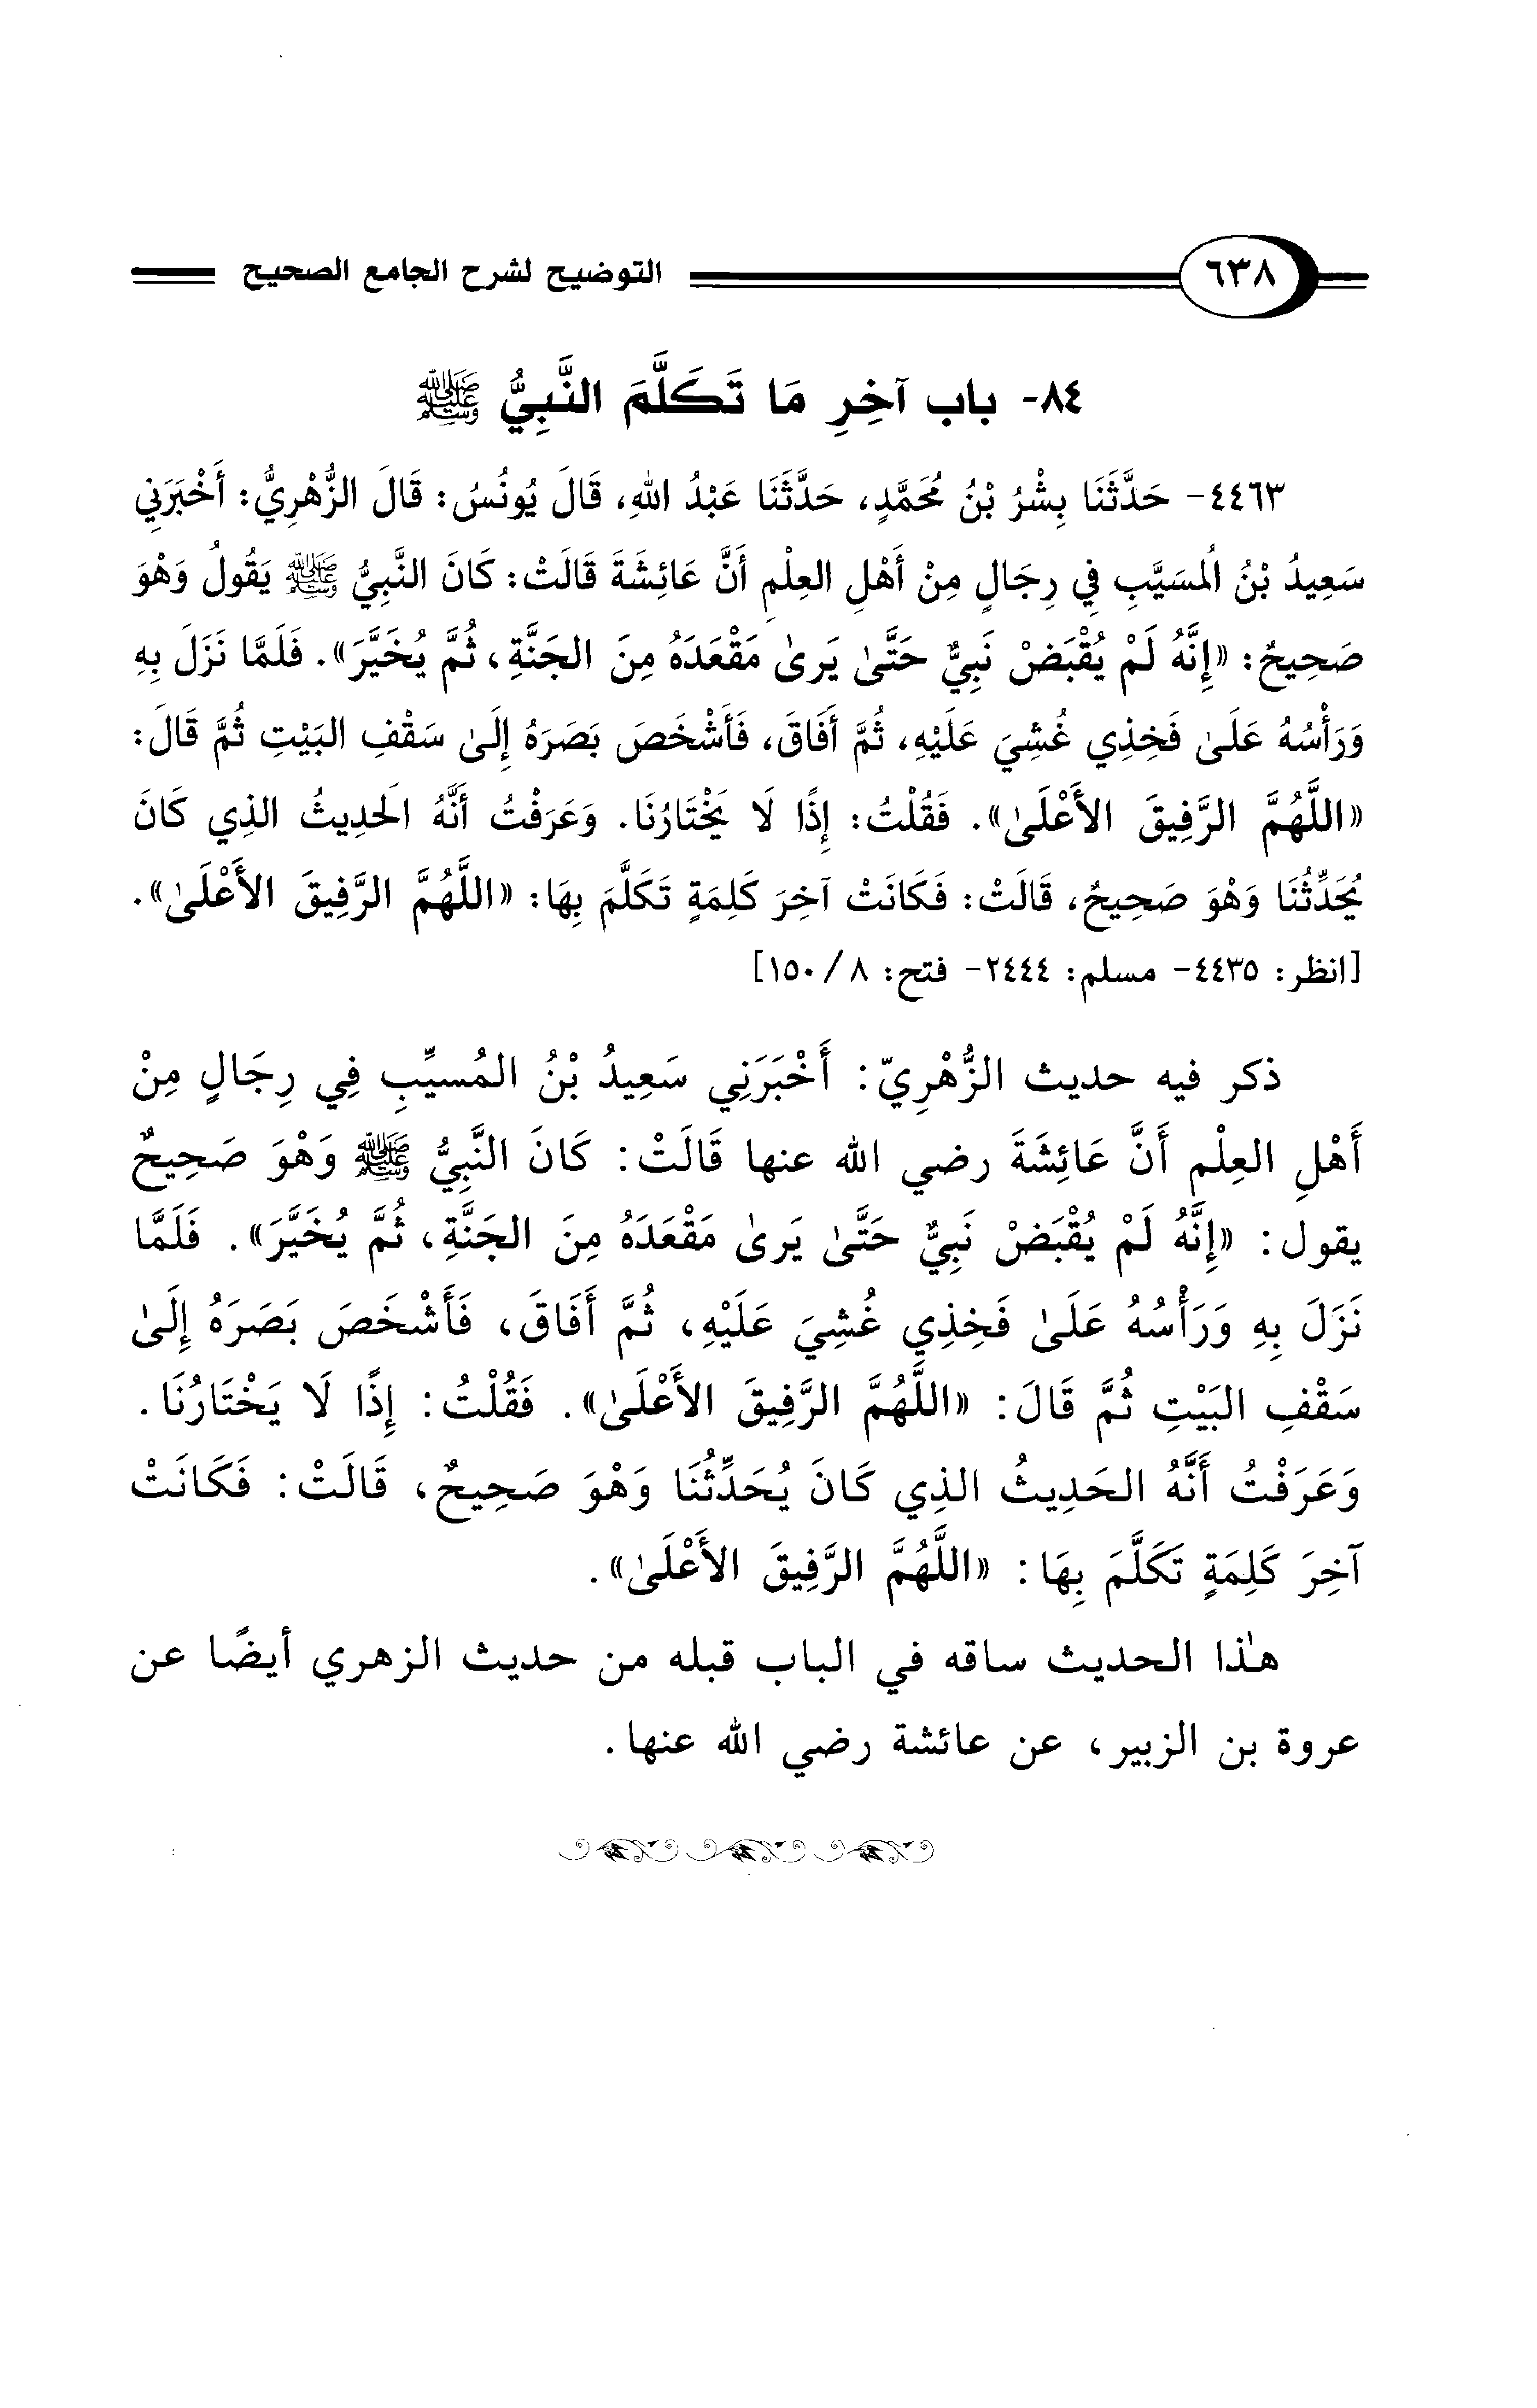 ٦٣٨ التوضيح لشرح الجامع الصحيح
٨٤- باب آخِرِ مَا تَكَلَّمَ النَّبِيُّ ﷺ
٤٤٦٣- حَدَّثَنَا بِشْرُ بْنُ مُحَمَّدٍ، حَدَّثَنَا عَبْدُ اللهِ، قَالَ يُونُسُ: قَالَ الزُّهْرِيُّ: أَخْبَرَنِي
سَعِيدُ بْنُ المُسَيَّبِ فِي رِجَالٍ مِنْ أَهْلِ العِلْمِ أَنَّ عَائِشَةَ قَالَتْ: كَانَ النَّبِيُّ ﷺ يَقُولُ وَهْوَ
صَحِيحٌ: «إِنَّهُ لَمْ يُقْبَضْ نَبِيٌّ حَتَّىٰ يَرىٰ مَقْعَدَهُ مِنَ الجَنَّةِ، ثُمَّ يُخَيَّرَ». فَلَمَّا نَزَلَ بِهِ
وَرَأْسُهُ عَلَىٰ فَخِذِي غُشِيَ عَلَيْهِ، ثُمَّ أَفَاقَ، فَأَشْخَصَ بَصَرَهُ إِلَىٰ سَقْفِ البَيْتِ ثُمَّ قَالَ:
«اللَّهُمَّ الرَّفِيقَ الأَعْلَىٰ». فَقُلْتُ: إِذًا لَا يَخْتَارُنَا. وَعَرَفْتُ أَنَّهُ الَحدِيثُ الذِي كَانَ
يُحَدِّثُنَا وَهْوَ صَحِيحٌ، قَالَتْ: فَكَانَتْ آخِرَ كَلِمَةٍ تَكَلَّمَ بِهَا: «اللَّهُمَّ الرَّفِيقَ الأَعْلَىٰ».
[انظر: ٤٤٣٥- مسلم: ٢٤٤٤- فتح: ٨/ ١٥٠]
ذكر فيه حديث الزُّهْرِيّ: أَخْبَرَنِي سَعِيدُ بْنُ المُسيِّبِ فِي رِجَالٍ مِنْ
أَهْلِ العِلْم أَنَّ عَائِشَةَ رضي الله عنها قَالَتْ: كَانَ النَّبِيُّ ﷺ وَهْوَ صَحِيحٌ
يقول: «إِنَّهُ لَمْ يُقْبَضْ نَبِيٌّ حَتَّىٰ يَرىٰ مَقْعَدَهُ مِنَ الجَنَّةِ، ثُمَّ يُخَيَّرَ». فَلَمَّا
نَزَلَ بِهِ وَرَأْسُهُ عَلَىٰ فَخِذِي غُشِيَ عَلَيْهِ، ثُمَّ أَفَاقَ، فَأَشْخَصَ بَصَرَهُ إِلَىٰ
سَقْفِ البَيْتِ ثُمَّ قَالَ: «اللَّهُمَّ الرَّفِيقَ الأَعْلَىٰ». فَقُلْتُ: إِذًا لَا يَخْتَارُنَا.
وَعَرَفْتُ أَنَّهُ الحَدِيثُ الذِي كَانَ يُحَدِّثُنَا وَهْوَ صَحِيحٌ، قَالَتْ: فَكَانَتْ
آخِرَ كَلِمَةٍ تَكَلَّمَ بِهَا: «اللَّهُمَّ الرَّفِيقَ الأَعْلَىٰ».
هـٰذا الحديث ساقه في الباب قبله من حديث الزهري أيضًا عن
عروة بن الزبير، عن عائشة رضي الله عنها.